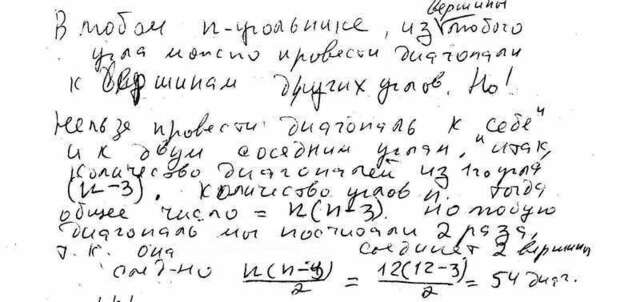 вершины
В любом n-угольнике, из любого
угла можно провести диагонали
к вершинам других углов. Но!
Нельзя провести диагональ к "себе"
и к двум соседним углам, итак,
количество диагоналей из 1го угла
(n-3). Количество углов n. Тогда
общее число = n(n-3). Но любую
диагональ мы посчитали 2 раза,
т.к. она соединяет 2 вершины
след-но n(n-3)/2 = 12(12-3)/2 = 54 диаг.